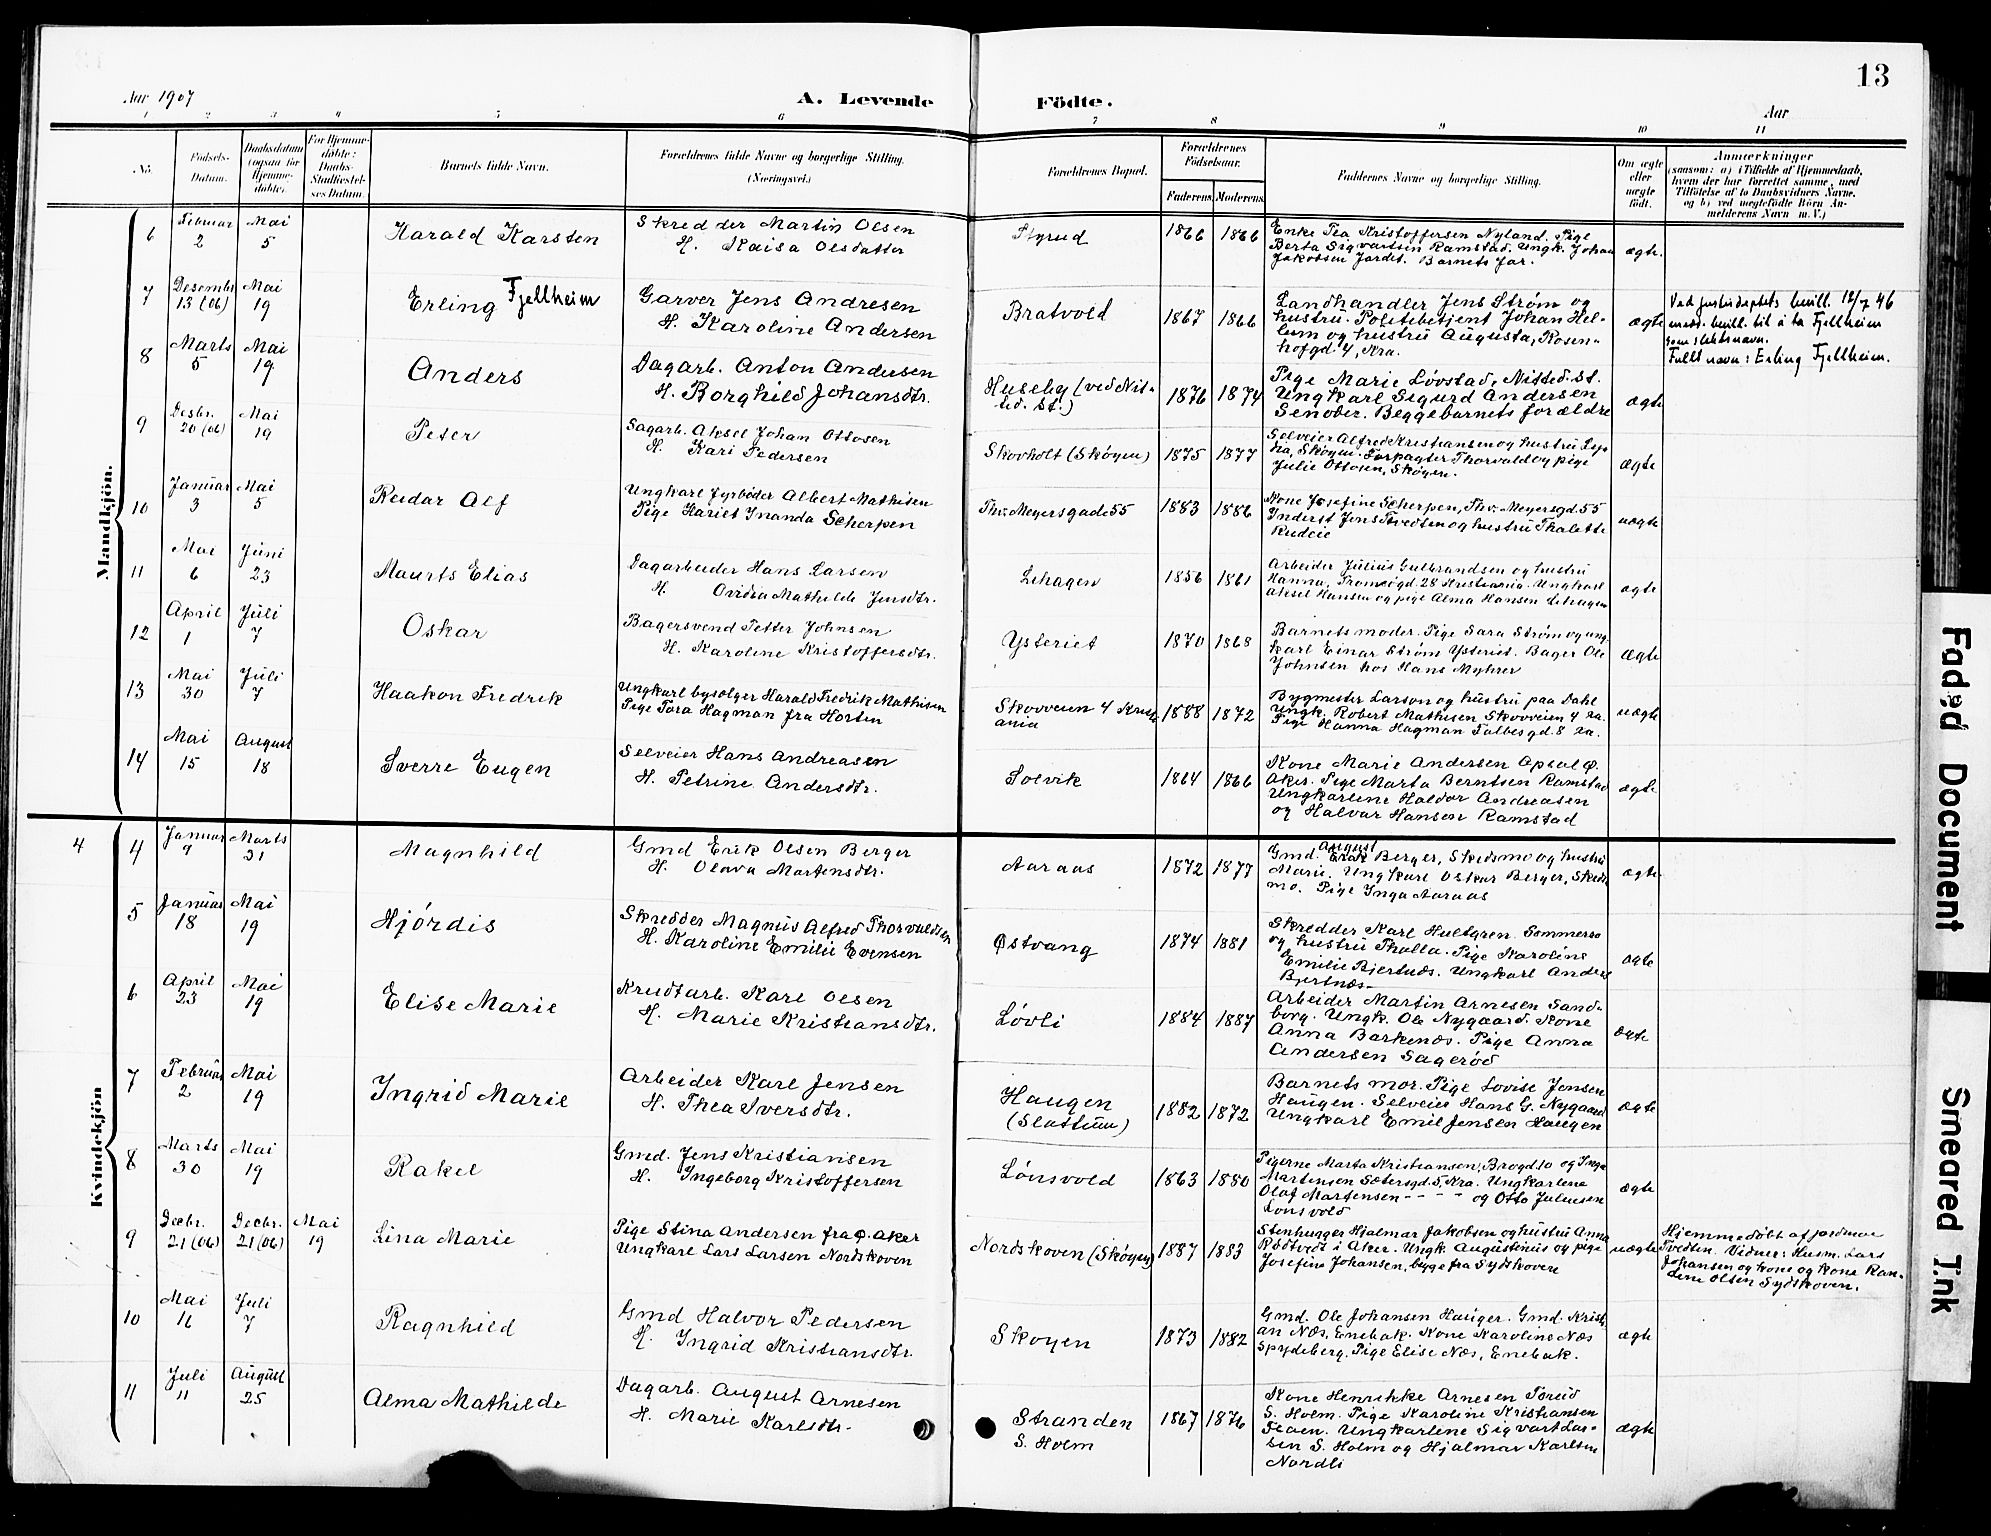 13
Aar 1907
A. Levende Födte.
Aar
1 2 3 4 5 6 7 8 9 10 11
No.
Födsels-Datum.
Daabsdatum (ogsaa for Hjemme-döbte).
For Hjemme-döbte: Daabs-Stadfæstelses Datum.
Barnets fulde Navn.
Forældrenes fulde Navne og borgerlige Stilling.
(Næringsvei.)
Forældrenes Bopæl.
Forældrenes Födselsaar.
Faderens. Moderens.
Faddernes Navne og borgerlige Stilling.
Om ægte eller uægte födt.
Anmærkninger
(saasom: a) i Tilfælde af Hjemmedaab,
hvem der har forrettet samme, med
Tilföielse af to Daabsvidners Navne.
og b) ved uægtefödte Börn An-
melderens Navn m. V.)
Mandkjön.
6 Februar 2 Mai 5 Harald Karsten
Skredder Martin Olsen
H. Kaisa Olsdatter
Styrud 1866 1866
Enke Tea Kristoffersen Nyland. Pige
Berta Sigvartsen Ramstad. Ungk. Johan
Jakobsen Jordet. Barnets far.
ægte.
7 Desembr 13 (06) Mai 19 Erling Fjellheim
Garver Jens Andresen
H. Karoline Andersen
Bratvold 1867 1866
Landhandler Jens Strøm og
hustru. Politibetjent Johan Hel-
lum og hustru Augusta, Rosen-
hofgd. 4, Kra.
ægte
Ved justisdeptets bevill. 12/7 46
medd. bevill. til å ta Fjellheim
som slektsnavn.
Fullt navn: Erling Fjellheim.
8 Marts 5 Mai 19 Anders
Dagarb. Anton Andersen
H. Borghild Johansdtr.
Huseby (ved Nit-
ted. St.) 1876 1874
Pige Marie Løvstad, Nitted. St.
Ungkarl Sigurd Andersen
Senober. Beggebarnets forældre
ægte
9 Desbr. 20 (06) Mai 19 Peter
Sagarb. Aksel Johan Ottosen
H. Kari Pedersen
Skovholt (Skøyen) 1875 1877
Selveier Alfred Kristiansen og hustru
Skøyen. Forpagter Thorvald og pige
Julie Ottosen, Skøyen.
ægte
10 Januar 3 Mai 5 Reidar Alf
Ungkarl Fyrbøder Albert Mathisen
Pige Hariet Inanda Scherpen
Thv. Meyersgade 55 1883 1886
Kone Josefine Scherpen, Thv. Meyersgd. 55
Inderst Jens Tvedten og hustru Thalette
 uægte
11 Mai 6 Juni 23 Maurts Elias
Dagarbeider Hans Larsen
H. Ovidia Mathilde Jensdtr.
Lihagen 1856 1861
Arbeider Julius Gulbrandsen og hustru
Hanna, Tromsøgd. 28 Kristiania. Ungkarl
Aksel Hansen og pige Alma Hansen Lihagen
ægte
12 April 1 Juli 7 Oskar
Bagersvend Petter Johnsen
H. Karoline Kristoffersdtr.
Ysteriet 1870 1868
Barnets moder. Pige Sara Strøm og ung-
karl Einar Strøm Ysteriet. Bager Ole
Johnsen hos Hans Myhrer
ægte
13 Mai 30 Juli 7 Haakon Fredrik
Ungkarl bysølger Harald Fredrik Mathisen
Pige Tora Hagman fra Horten
Skovveien 4 Krist-
ania 1888 1872
Bygmester Larson og hustru paa Dahl
Ungk. Robert Mathisen Skovveien 4 Kra.
Pige Hanna Hagman Falbesgd. 8 Kra.
uægte
14 Mai 15 August 18 Sverre Eugen
Selveier Hans Andreasen
H. Petrine Andersdtr.
Solvik 1864 1866
Kone Marie Andersen Apsal Ø.
Aker. Pige Marta Berntsen Ramstad
Ungkarlene Haldor Andreasen
og Halvar Hansen Ramstad
ægte
Kvindekjön
4
4 Januar 9 Marts 31 Magnhild
Gmd Erik Olsen Berger
H. Olava Martensdtr.
Aaraas 1872 1877
August
Gmd. Erik Berger, Skedsmo og hustru
Marie. Ungkarl Oskar Berger, Skeds-
mo. Pige Inga Aaraas
ægte
5 Januar 18 Mai 19 Hjørdis
Skredder Magnus Alfred Thorvaldsen
H. Karoline Emilie Evensen
Østvang 1874 1881
Skredder Karl Hultgren. Sommerro
og hustru Thalla. Pige Karoline
Emilie Bjertnæs. Ungkarl Anders
Bjertnæs.
ægte
6 April 23 Mai 19 Elise Marie
Krudtarb. Karl Olsen
H. Marie Kristiansdtr.
Løvli 1884 1887
Arbeider Martin Arnesen Sand-
borg. Ungk. Ole Nygaard. Kone
Anna Barkenæs. Pige Anna
Andersen Sagerød
ægte
7 Februar 2 Mai 19 Ingrid Marie
Arbeider Karl Jensen
H. Thea Iversdtr.
Haugen
(Slattum) 1882 1872
Barnets mor. Pige Lovise Jensen
Haugen. Selveier Hans G. Nygaard
Ungkarl Emil Jensen Haugen
ægte
8 Marts 30 Mai 19 Rakel
Gmd. Jens Kristiansen
H. Ingeborg Kristoffersen
Lønsvold 1863 1880
Pigerne Marta Kristiansen, Brogd. 10 og Inga
Martensen Sætersgd. 5, Kra. Ungkarlene
Olaf Martensen - - - - og Otto Juliusen
Lønsvold
ægte
9 Decbr. 21 (06) Decbr. 21 (06) Mai 19 Lina Marie
Pige Stina Andersen fra Ø. Aker
Ungkarl Lars Larsen Nordskoven
Nordskoven (Skøyen) 1887 1883
Stenhugger Hjalmar Jakobsen og hustru Anna
Rødtvedt i Aker. Ungk. Augustinius og pige
Josefine Johansen, begge fra Sydskoven
uægte
Hjemmedøbt af jordmor
Tvedten. Vidner: Husm. Lars
Johansen og kone og kone Kar-
line Olsen Sydskoven.
10 Mai 16 Juli 7 Ragnhild
Gmd Halvor Pedersen
H. Ingrid Kristiansdtr.
Skøyen 1873 1882
Gmd. Ole Johansen Hauger. Gmd. Kristi-
an Næs, Enebak. Kone Karoline Næs
Spydeberg. Pige Elise Næs, Enebak.
ægte
11 Juli 11 August 25 Alma Mathilde
Dagarb. August Arnesen
H. Marie Karlsdtr.
Stranden
S. Holm 1867 1876
Kone Henrikke Arnesen
S. Holm. Pige Karoline Kristiansen
Flaen. Ungkarlene Sigvart Lar-
sen S. Holm og Hjalmar Karlsen
Nordli
ægte
Faded Document
Smeared Ink